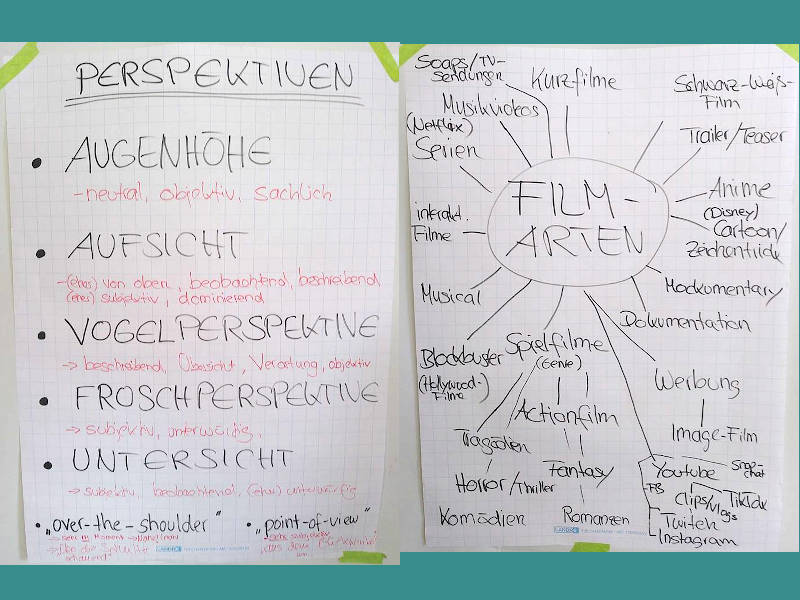 PERSPEKTIVEN
• AUGENHÖHE
- neutral, objektiv, sachlich
• AUFSICHT
- (etwas) von oben, beobachtend, beschreibend
(etwas) subjektiv, dominierend
• VOGELPERSPEKTIVE
→ beschreibend, Übersicht, Verortung, objektiv
• FROSCHPERSPEKTIVE
→ subjektiv, unterwürfig,
• UNTERSICHT
→ subjektiv, beobachtend, (etwas) unterwürfig
• „over-the-shoulder"
→ sehr im Moment
→ „über die Schulter
schauend"
• „point-of-view"
→ sehr subjektiv
„aus dem Blickwinkel
von...
LANDRÉ
FILM-
ARTEN
Soaps/TV-
Sendungen
Kurzfilme
Schwarz-Weiß-
Film
Musikvideos
Trailer/Teaser
(Netflix)
Serien
Anime
(Disney)
Cartoon/
Zeichentrick
interakt.
Filme
Mockumentary
Musical
Dokumentation
Blockbuster
(Hollywood-)
Filme
Spielfilme
(Genre)
Werbung
Image-Film
Actionfilm
Tragödien
Fantasy
Horror/Thriller
Komödien
Romanzen
Youtube
Snap-
chat
FB
Clips/Vlogs
TikTok
Twitch
Instagram
LANDRÉ